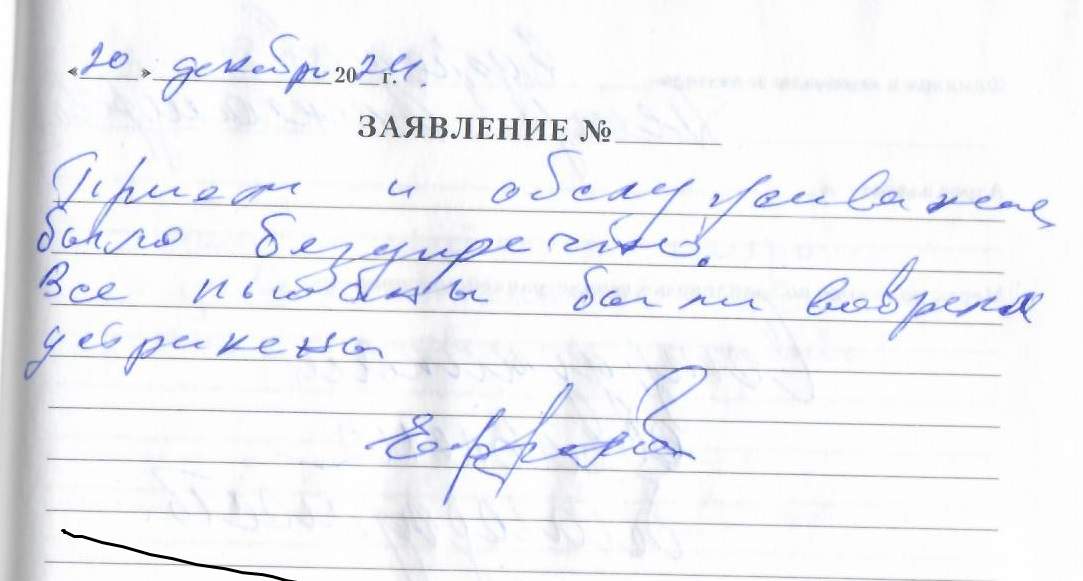 «20» декабря 2024 г.
ЗАЯВЛЕНИЕ №
Прием и обслуживание
было безупречно.
Все были вовремя
устранены